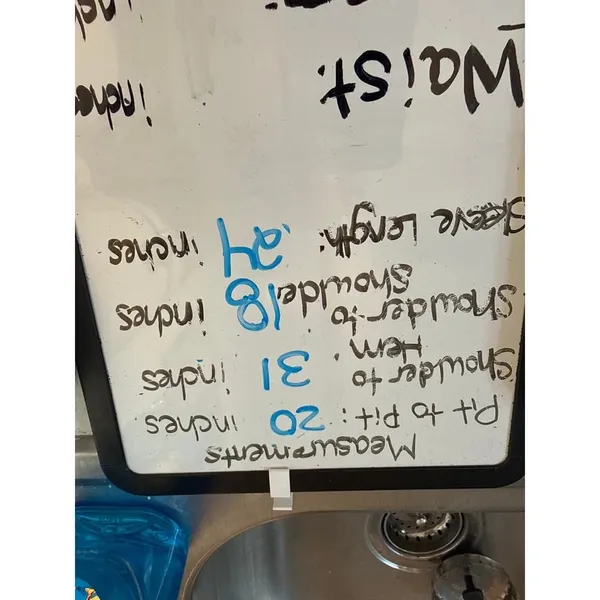 Measurements
Pit to Pit: 20 inches
Shoulder to
Hem. 31 inches
Showlder to
Shoulde 18 inches
Sleeve Length: 24 inches
Waist: inches